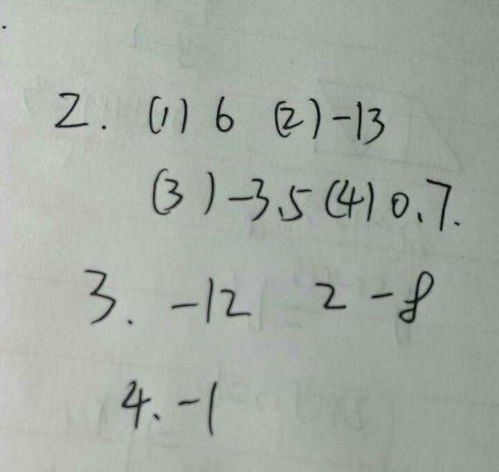 2. (1) 6 (2) -13
(3) -3.5 (4) 0.7.
3. -12 2 -8
4. -1